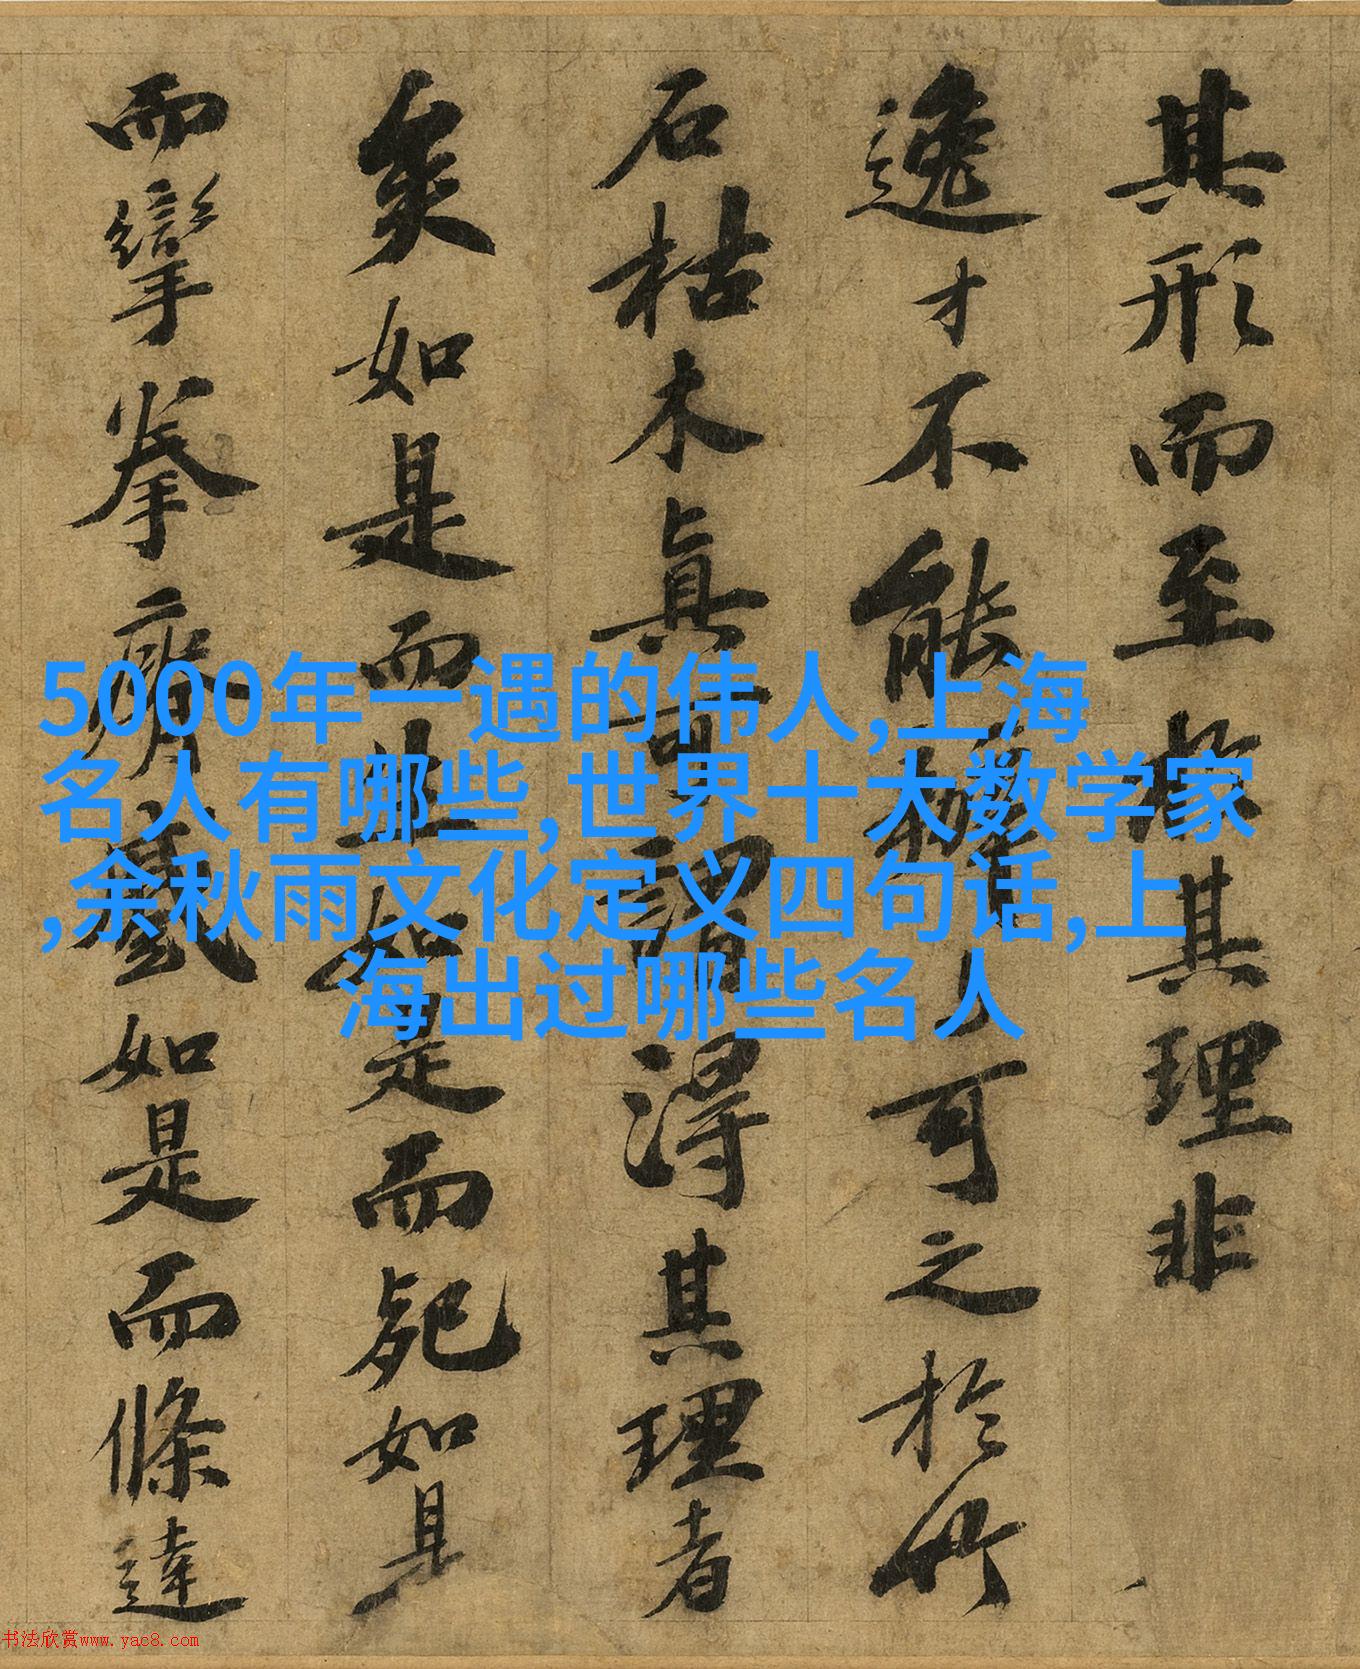 其形而至於其理非
逸才不能可之於竹
石枯木真可謂得其理者
矣如是而生如是而死如是
而攣拳瘠蹙如是而條達
5000年一遇的伟人,上海
名人有哪些,世界十大数学家
,余秋雨文化定义四句话,上
海出过哪些名人
书法欣赏www.yac8.com